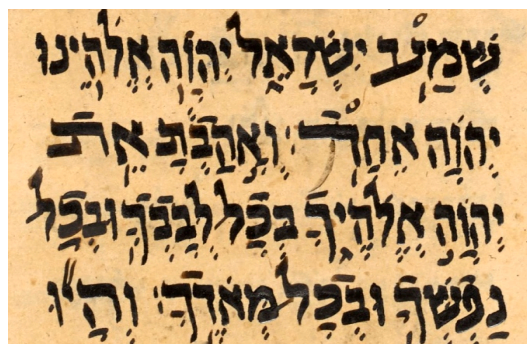 שְׁמַע יִשְׂרָאֵל יְהוָה אֱלֹהֵינוּ
יְהוָה אֶחָד׃ וְאָהַבְתָּ אֵת
יְהוָה אֱלֹהֶיךָ בְּכָל לְבָבְךָ וּבְכָל
נַפְשְׁךָ וּבְכָל מְאֹדֶךָ׃ וְהָיוּ